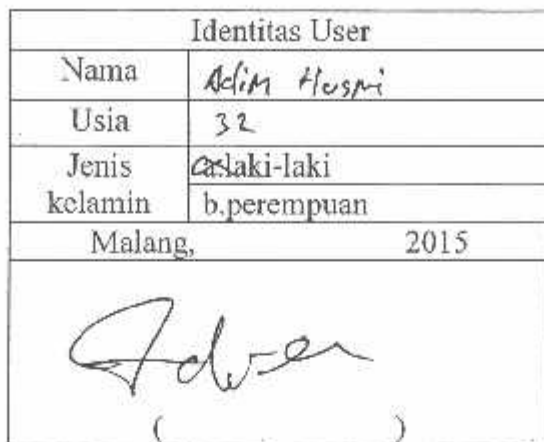 Identitas User
Nama Adim Husni
Usia 32
Jenis kelamin a.laki-laki
b.perempuan
Malang, 2015
( )